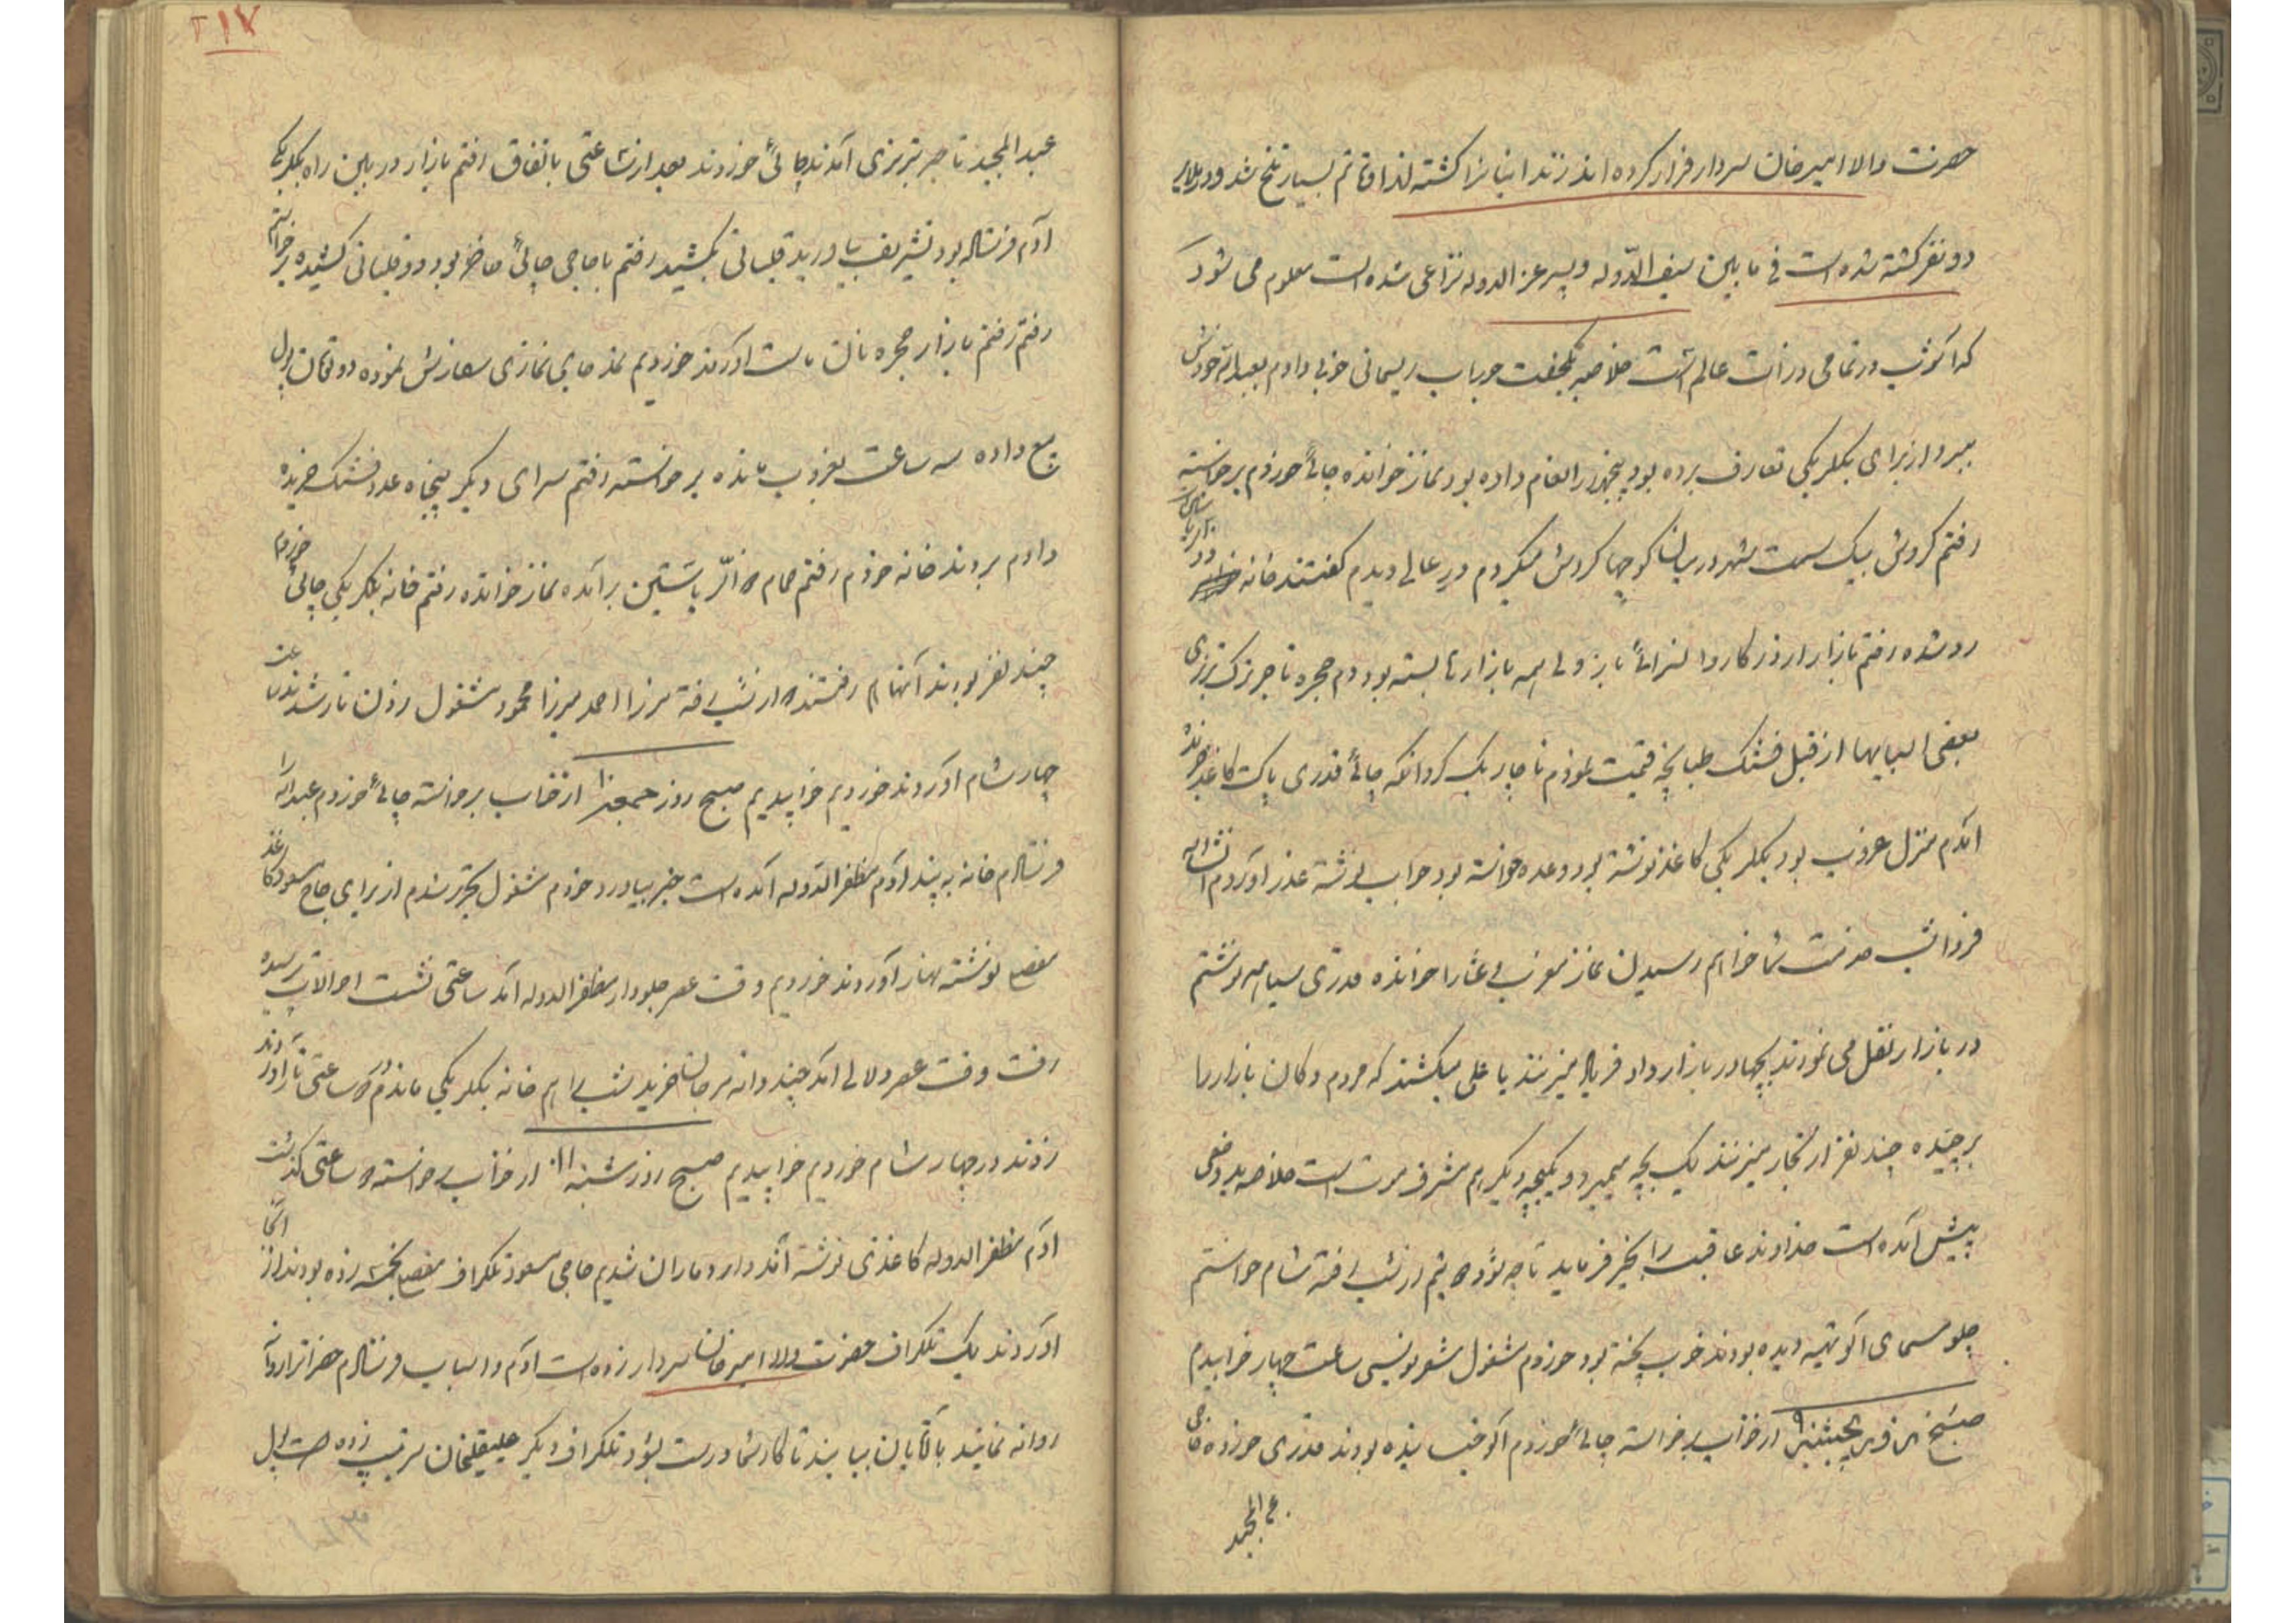 حضرت والا امیرخان سردار فرار کرده‌اند زندانبانرا کشته لذا اوقاتم بسیار تلخ شد و در ملایر
دو نفر کشته شده است فی مابین سیف الدّوله و پسر عزالدوله نزاعی شده است معلوم می شود
که آشوب در تمامی ذرات عالم است خلاصه یکجفت جوراب ریسمانی خوبی دادم بعبدالله خودش
ببرد از برای بیگلربیگی تعارف برده بود پنجهزار انعام داده بود نماز خوانده چائی خوردم برخاسته
رفتم گردش بیک سمت شهر در میان کوچها گردش میکردم در عالی دیدم گفتند خانه
رد شده رفتم بازار از در کاروانسرائی باز ولی همه بازارها بسته بود دم حجره تاجر ترک تبریزی
بعضی اسبابها از قبیل فشنگ طپانچه قیمت نمودم ناچار یک گروانکه چائی قدری پاکت کاغذ خریده
آمدم منزل غروب بود بیگلربیگی کاغذ نوشته بود وعده خواسته بود جواب نوشته عذر آوردم انشاالله
فردا شب خدمت شما خواهم رسید نماز مغرب و عشا را خوانده قدری سیاهه نوشتم
در بازار نقل می نمودند بچها در بازار داد فریاد میزنند یا علی میکشند که مردم دکان بازار را
برچیده چند نفر از تجار میزنند یک بچه میمیرد و یکبچه دیگر هم مشرف موت است خلاصه بد وضعی
پیش آمده است خداوند عاقبت را بخیر فرماید تا چه شود شب رفته شام خواستم
چلو مسمای آلو تهیه دیده بودند خوب پخته بود خوردم مشغول شعرنویسی ساعت چهار خوابیدم
صبح روز پنجشنبه ۹ از خواب برخاسته چائی خوردم آلو خیسانیده بودند قدری خورده حاجی
عبدالمجید
۲۱۷
عبدالمجید تاجر تبریزی آمدند چائی خوردند بعد از ساعتی باتفاق رفتم بازار در بین راه بیگلربیگی
آدم فرستاده بود تشریف بیاورید قلیانی بکشید رفتم با حاجی چائی حاضر بود و قلیانی کشیده برخاستم
رفتم رفتم بازار حجره نان ماست آوردند خوردیم نمد جای نمازی سفارش نموده دو تومان پول
بیع داده سه ساعت بغروب مانده برخاسته رفتم سرای دیگر پنجاه عدد فشنگ خریده
دادم بردند خانه خودم رفتم حمام برآمده نماز خوانده رفتم خانه بیگلربیگی چائی خوردم
چند نفر بودند آنها هم رفتند از شب رفته میرزا احمد میرزا محمود مشغول زدن تار شدند ساعت
چهار شام آوردند خوردیم خوابیدیم صبح روز جمعه ۱۰ از خواب برخاسته چائی خوردم عبدالله را
فرستادم خانه به بیند آدم مظفرالدوله آمده است خبر بیاورد خودم مشغول تحریر شدم از برای حاج مسعود کاغذ
مفصل نوشته نهار آوردند خوردیم وقت عصر جلودار مظفرالدوله آمد ساعتی نشست احوالات پرسیده
رفت وقت عصر دلالی آمد چند دانه مرجان خرید شب را هم خانه بیگلربیگی ماندم ساعتی تار آوردند
زدند در چهار شام خوردیم خوابیدیم صبح روز شنبه ۱۱ از خواب برخاسته ساعتی گذشت
آدم مظفرالدوله کاغذی نوشته آمد وارد ماران شدیم حاجی مسعود تلگراف مفصل بخمسه زده بودند از آنجا
آوردند یک تلگراف حضرت والا امیرخان سردار زده است آدم و اسباب فرستادم حضراترا روانه
روانه نمائید با آقایان بیایند تا کار شما درست بشود تلگراف دیگر علیقلیخان سرتیپ زده است پول